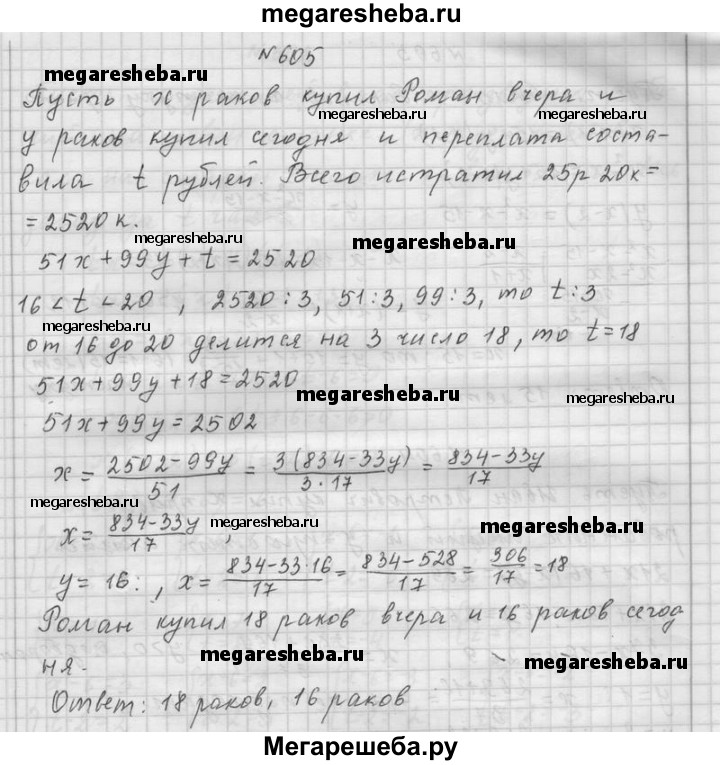 megaresheba.ru
N605
megaresheba.ru
Пусть x раков купил Роман вчера и
megaresheba.ru megaresheba.ru
y раков купил сегодня и переплата соста-
вила t рублей. Всего истратил 25р 20к=
megaresheba.ru
= 2520 к.
megaresheba.ru megaresheba.ru
51x + 99y + t = 2520
16 < t < 20 , 2520 : 3, 51 : 3, 99 : 3, то t : 3
megaresheba.ru megaresheba.ru
от 16 до 20 делится на 3 число 18, то t = 18
51x + 99y + 18 = 2520
megaresheba.ru megaresheba.ru
51x + 99y = 2502
x = (2502 - 99y)/51 = 3(834 - 33y)/(3 · 17) = (834 - 33y)/17
megaresheba.ru megaresheba.ru
x = (834 - 33y)/17 ,
megaresheba.ru megaresheba.ru
y = 16: , x = (834 - 33·16)/17 = (834 - 528)/17 = 306/17 = 18
Роман купил 18 раков вчера и 16 раков сегод
ня.
megaresheba.ru megaresheba.ru
Ответ: 18 раков, 16 раков
Мегарешеба.ру